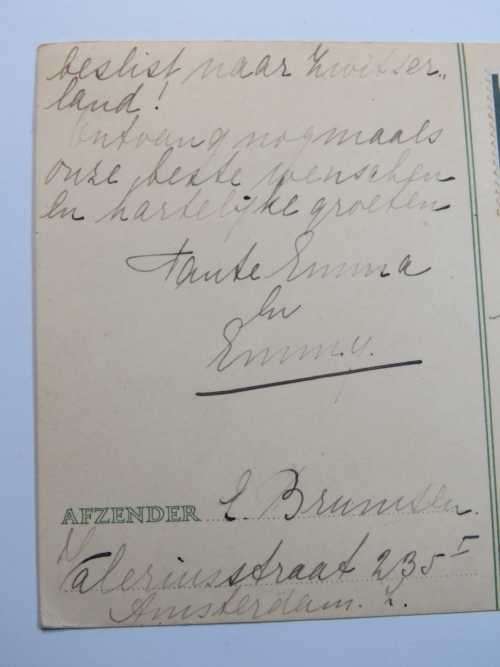 beslist naar Zwitser„
land!
Ontvang nogmaals
onze beste wenschen
en hartelijke groeten
Tante Emma
en
Emmy.
AFZENDER E. Brumsen.
Valeriusstraat 235 I
Amsterdam. Z.